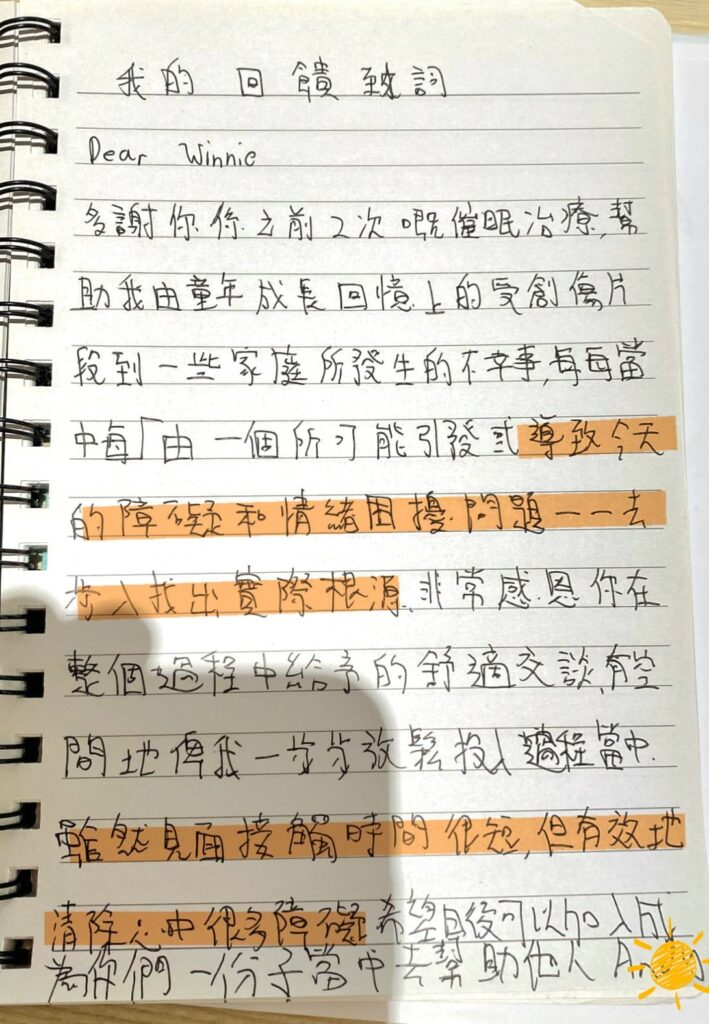 我的 回饋致詞
Dear Winnie
多謝你係之前2次嘅催眠治療,幫
助我由童年成長回憶上的受創傷片
段到一些家庭所發生的不幸事,每每當
中每「由一個所可能引發或導致今天
的障礙和情緒困擾問題一一去
步入找出實際根源,非常感恩你在
整個過程中給予的舒適交談,有空
間地俾我一步步放鬆投入過程當中.
雖然見面接觸時間很短,但有效地
清除心中很多障礙希望日後可以加入成
為你們一份子當中去幫助他人